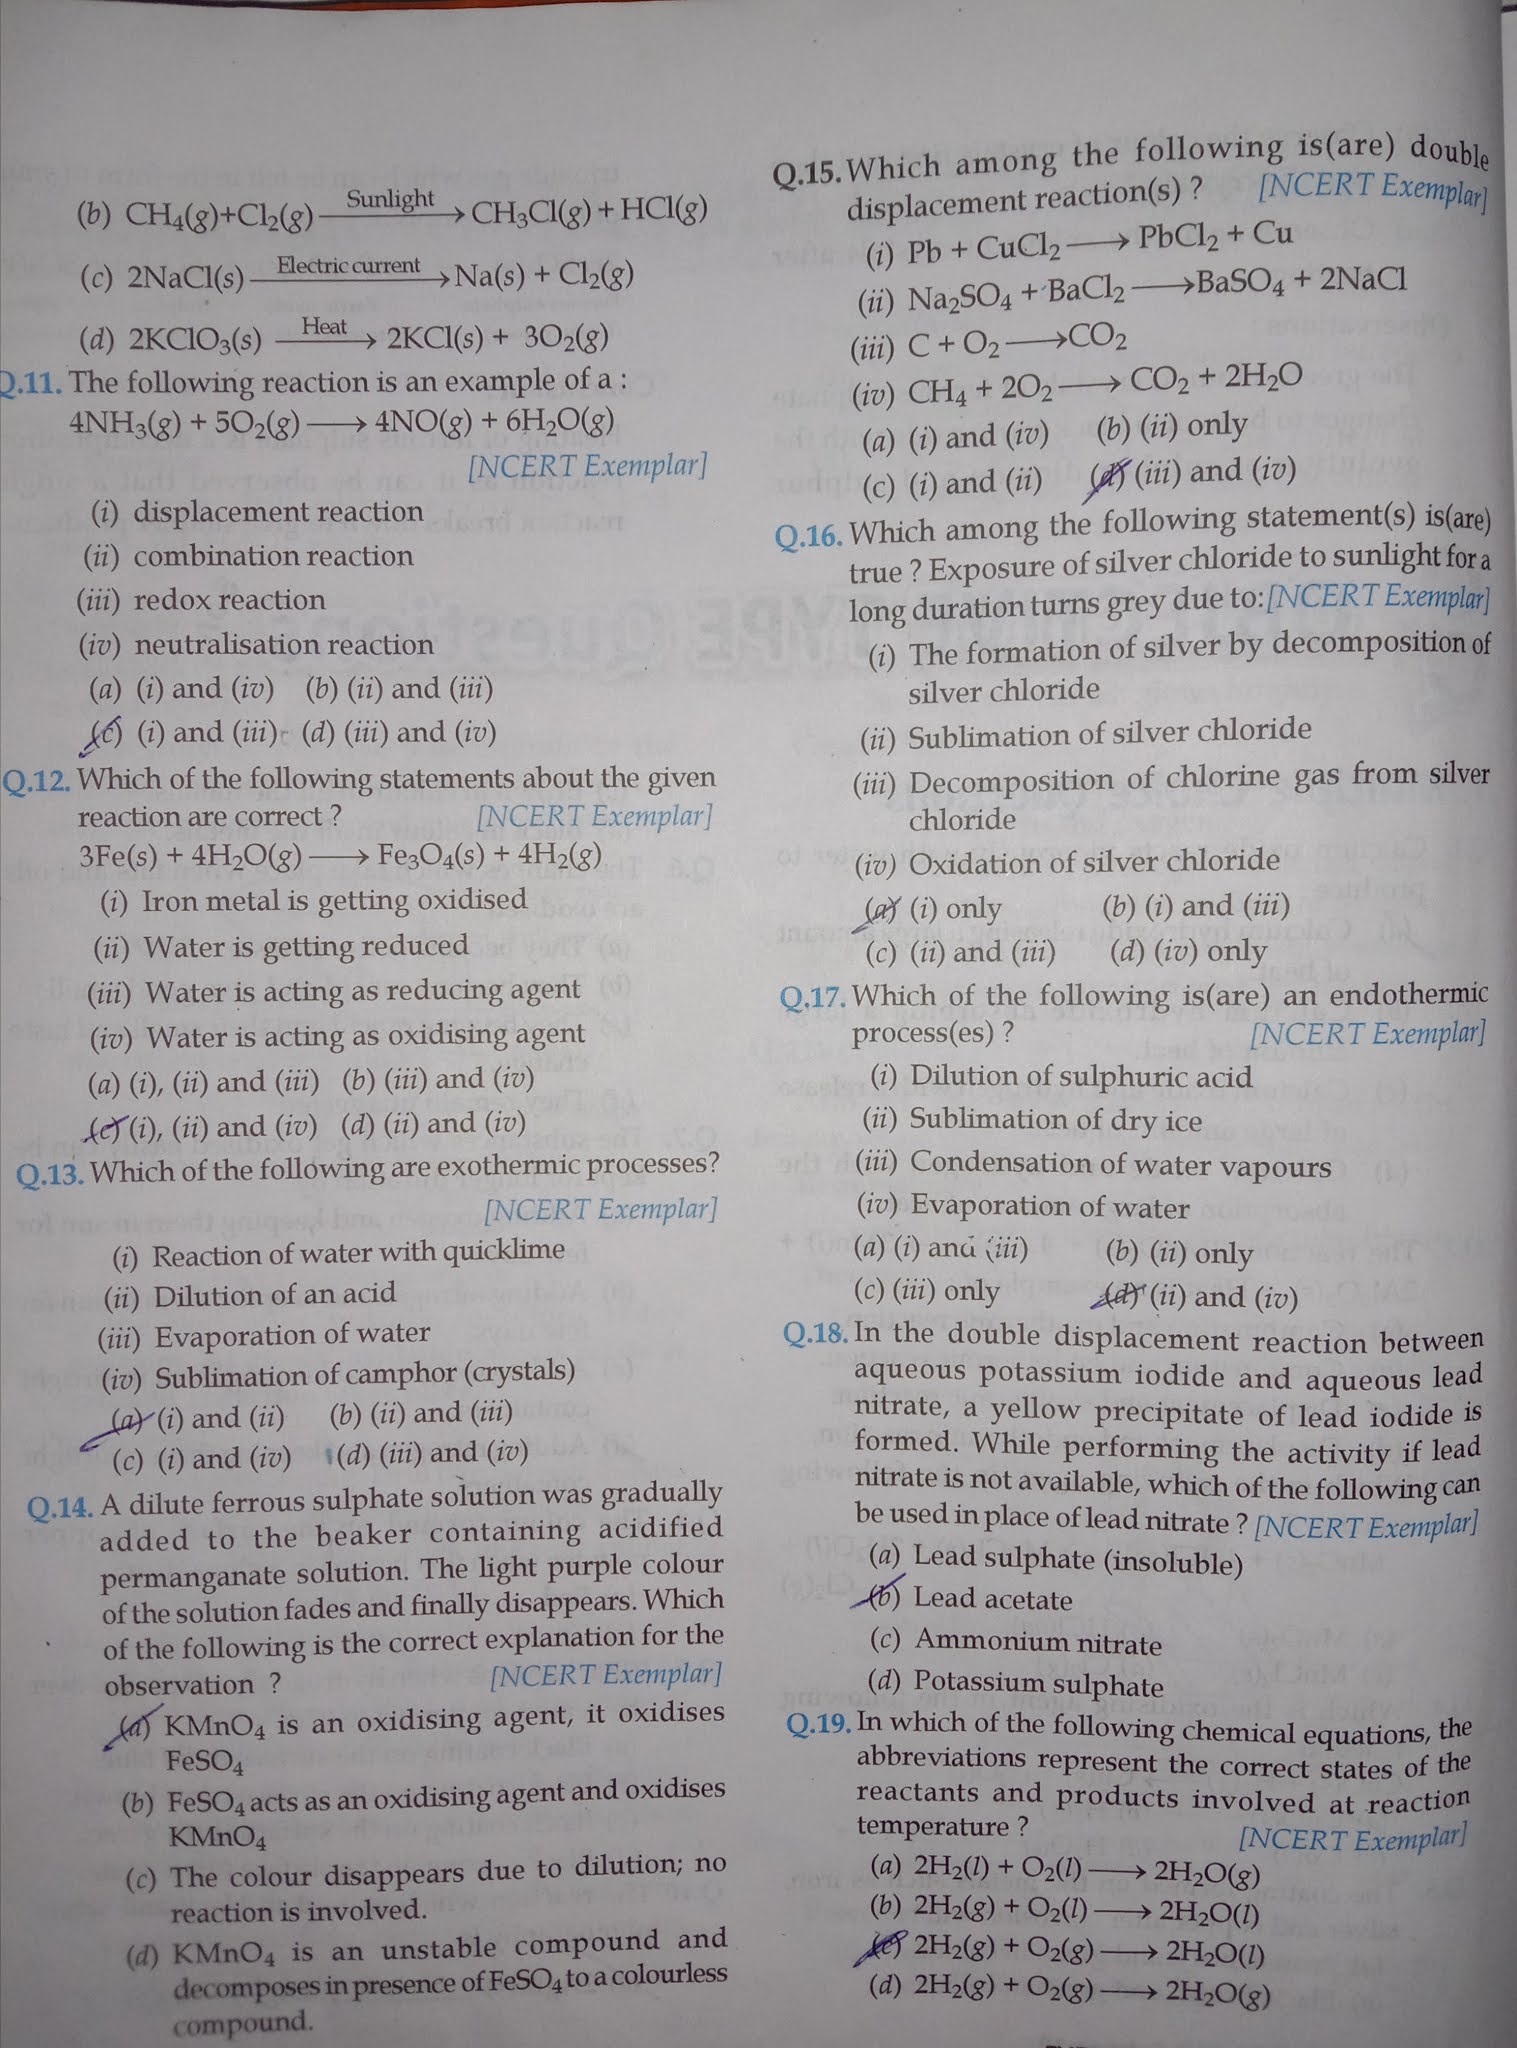 (b) CH₄(g)+Cl₂(g) —Sunlight→ CH₃Cl(g) + HCl(g)
(c) 2NaCl(s) —Electric current→ Na(s) + Cl₂(g)
(d) 2KClO₃(s) —Heat→ 2KCl(s) + 3O₂(g)
Q.11. The following reaction is an example of a :
4NH₃(g) + 5O₂(g) ⟶ 4NO(g) + 6H₂O(g)
[NCERT Exemplar]
(i) displacement reaction
(ii) combination reaction
(iii) redox reaction
(iv) neutralisation reaction
(a) (i) and (iv) (b) (ii) and (iii)
(c) (i) and (iii) (d) (iii) and (iv)
Q.12. Which of the following statements about the given
reaction are correct ? [NCERT Exemplar]
3Fe(s) + 4H₂O(g) ⟶ Fe₃O₄(s) + 4H₂(g)
(i) Iron metal is getting oxidised
(ii) Water is getting reduced
(iii) Water is acting as reducing agent
(iv) Water is acting as oxidising agent
(a) (i), (ii) and (iii) (b) (iii) and (iv)
(c) (i), (ii) and (iv) (d) (ii) and (iv)
Q.13. Which of the following are exothermic processes?
[NCERT Exemplar]
(i) Reaction of water with quicklime
(ii) Dilution of an acid
(iii) Evaporation of water
(iv) Sublimation of camphor (crystals)
(a) (i) and (ii) (b) (ii) and (iii)
(c) (i) and (iv) (d) (iii) and (iv)
Q.14. A dilute ferrous sulphate solution was gradually
added to the beaker containing acidified
permanganate solution. The light purple colour
of the solution fades and finally disappears. Which
of the following is the correct explanation for the
observation ? [NCERT Exemplar]
(a) KMnO₄ is an oxidising agent, it oxidises
FeSO₄
(b) FeSO₄ acts as an oxidising agent and oxidises
KMnO₄
(c) The colour disappears due to dilution; no
reaction is involved.
(d) KMnO₄ is an unstable compound and
decomposes in presence of FeSO₄ to a colourless
compound.
Q.15. Which among the following is(are) double
displacement reaction(s) ? [NCERT Exemplar]
(i) Pb + CuCl₂ ⟶ PbCl₂ + Cu
(ii) Na₂SO₄ + BaCl₂ ⟶ BaSO₄ + 2NaCl
(iii) C + O₂ ⟶ CO₂
(iv) CH₄ + 2O₂ ⟶ CO₂ + 2H₂O
(a) (i) and (iv) (b) (ii) only
(c) (i) and (ii) (d) (iii) and (iv)
Q.16. Which among the following statement(s) is(are)
true ? Exposure of silver chloride to sunlight for a
long duration turns grey due to: [NCERT Exemplar]
(i) The formation of silver by decomposition of
silver chloride
(ii) Sublimation of silver chloride
(iii) Decomposition of chlorine gas from silver
chloride
(iv) Oxidation of silver chloride
(a) (i) only (b) (i) and (iii)
(c) (ii) and (iii) (d) (iv) only
Q.17. Which of the following is(are) an endothermic
process(es) ? [NCERT Exemplar]
(i) Dilution of sulphuric acid
(ii) Sublimation of dry ice
(iii) Condensation of water vapours
(iv) Evaporation of water
(a) (i) and (iii) (b) (ii) only
(c) (iii) only (d) (ii) and (iv)
Q.18. In the double displacement reaction between
aqueous potassium iodide and aqueous lead
nitrate, a yellow precipitate of lead iodide is
formed. While performing the activity if lead
nitrate is not available, which of the following can
be used in place of lead nitrate ? [NCERT Exemplar]
(a) Lead sulphate (insoluble)
(b) Lead acetate
(c) Ammonium nitrate
(d) Potassium sulphate
Q.19. In which of the following chemical equations, the
abbreviations represent the correct states of the
reactants and products involved at reaction
temperature ? [NCERT Exemplar]
(a) 2H₂(l) + O₂(l) ⟶ 2H₂O(g)
(b) 2H₂(g) + O₂(l) ⟶ 2H₂O(l)
(c) 2H₂(g) + O₂(g) ⟶ 2H₂O(l)
(d) 2H₂(g) + O₂(g) ⟶ 2H₂O(g)